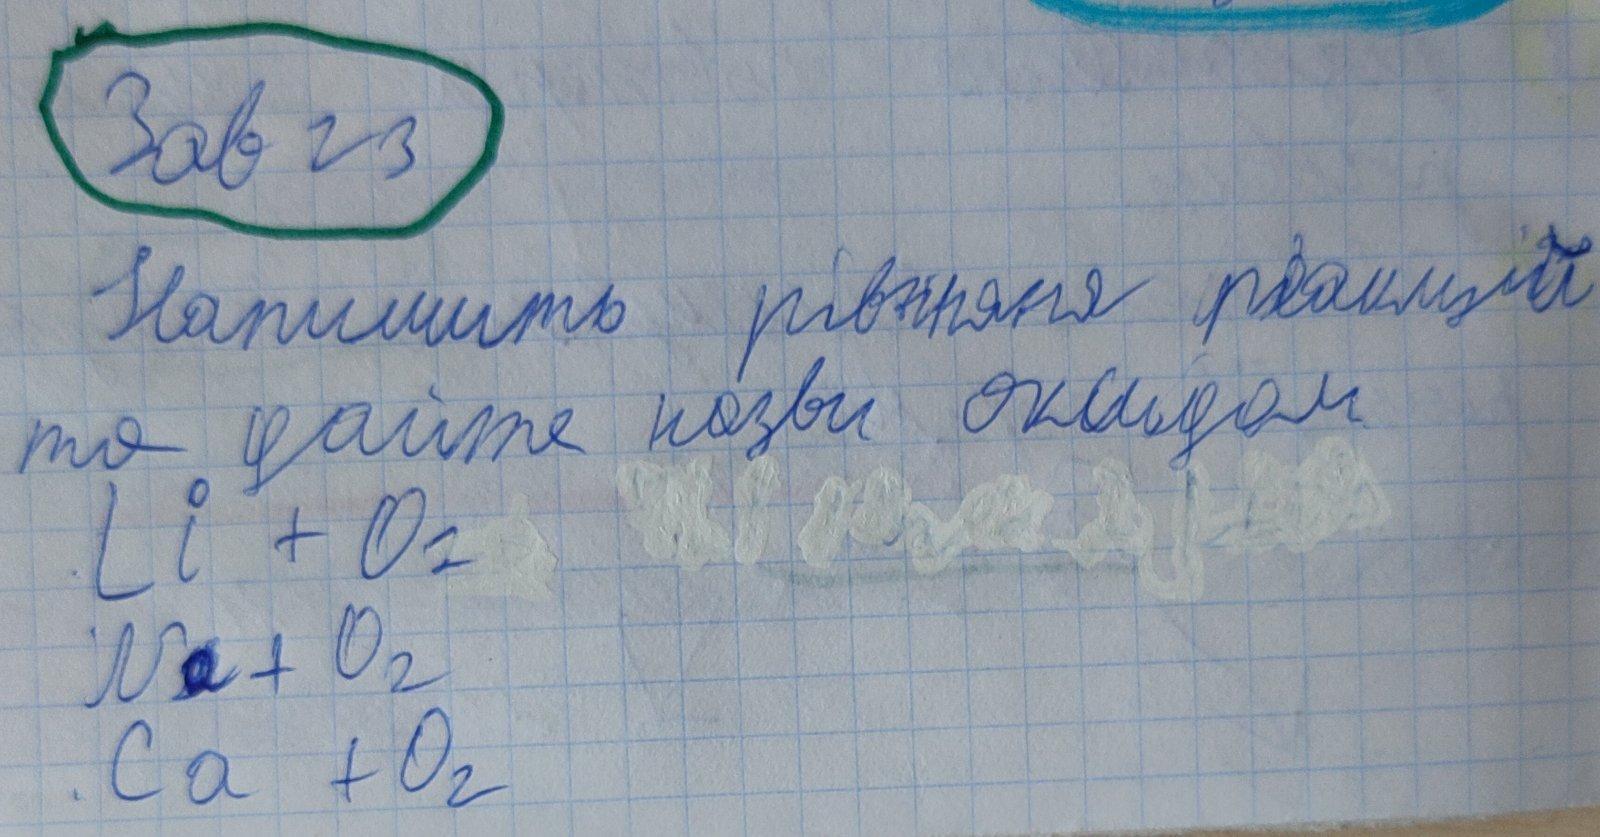 Зав 23
Напишить рівнняня реакций
та дайте назви оксидам
Li + O₂
Na + O₂
Ca + O₂